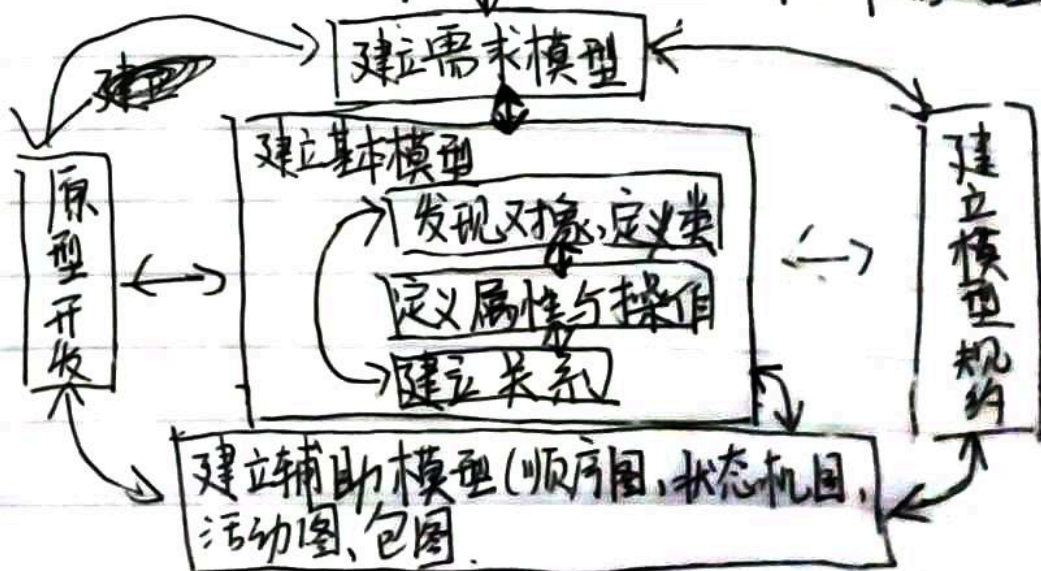 建立需求模型
建立基本模型
发现对象、定义类
定义属性与操作
建立关系
原型开发
建立模型规约
建立辅助模型(顺序图、状态机图、
活动图、包图.